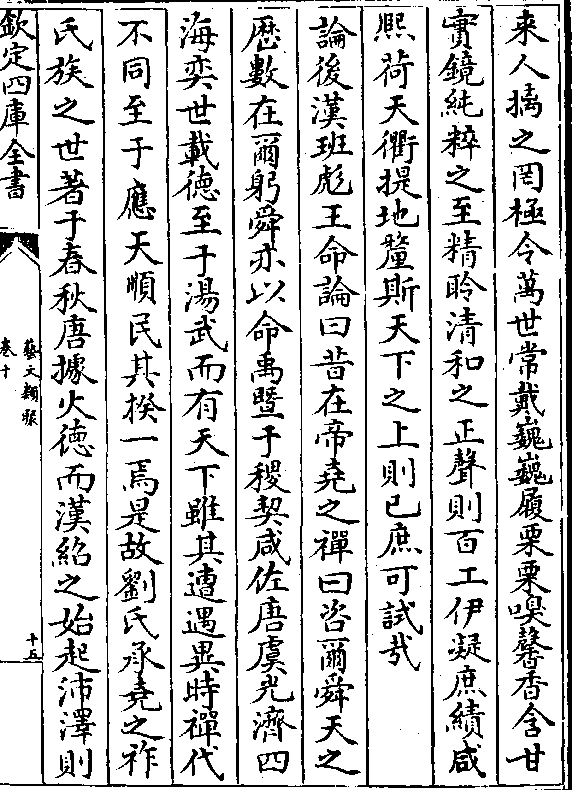 来人摛之罔極令萬世常戴巍巍履栗栗嗅馨香含甘
實鏡純粹之至精聆清和之正聲則百工伊凝庶績咸
熙荷天衢提地釐斯天下之上則已庶可試㢤
論後漢班彪王命論曰昔在帝堯之禪曰咨爾舜天之
歴數在爾躬舜亦以命禹暨于稷契咸佐唐虞光濟四
海奕世載德至于湯武而有天下雖其遭遇異時禪代
不同至于應天順民其揆一焉是故劉氏承堯之祚
氏族之世著于春秋唐據火德而漢紹之始起沛澤則
欽定四庫全書
藝文類聚
卷十
十五